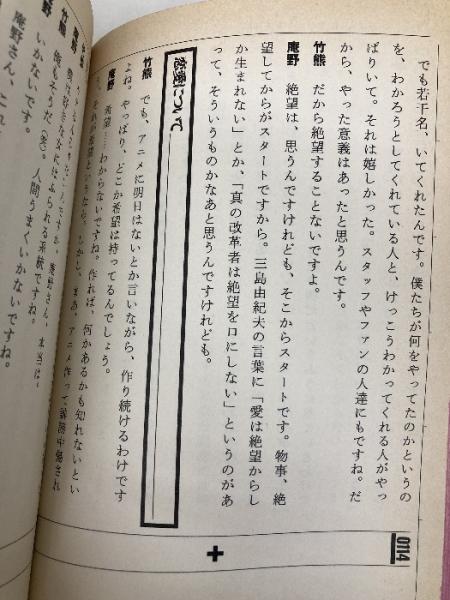 でも若干名、いてくれたんです。僕たちが何をやってたのかというの
を、わかろうとしてくれている人と、けっこうわかってくれる人がやっ
ぱりいて。それは嬉しかった。スタッフやファンの人達にもですね。だ
から、やった意義はあったと思うんです。
竹熊 だから絶望することないですよ。
庵野 絶望は、思うんですけれども、そこからスタートです。物事、絶
望してからがスタートですから。三島由紀夫の言葉に「愛は絶望からし
か生まれない」とか、「真の改革者は絶望を口にしない」というのがあ
って、そういうものかなあと思うんですけれども。
恋愛について
竹熊 でも、アニメに明日はないとか言いながら、作り続けるわけです
よね。やっぱり、どこか希望は持ってるんでしょう。
庵野 希望……わからないですね。作れば、何かあるかも知れないとい
それが希望というなら。しかし、まあ、アニメ作って誹謗中傷され
庵野さん、本当は、
僕は好きな女にはふられる系統ですね。
竹熊 俺もそうだ（笑）。人間うまくいかないですね。
いかないです。
庵野
庵野さん、これ
0114